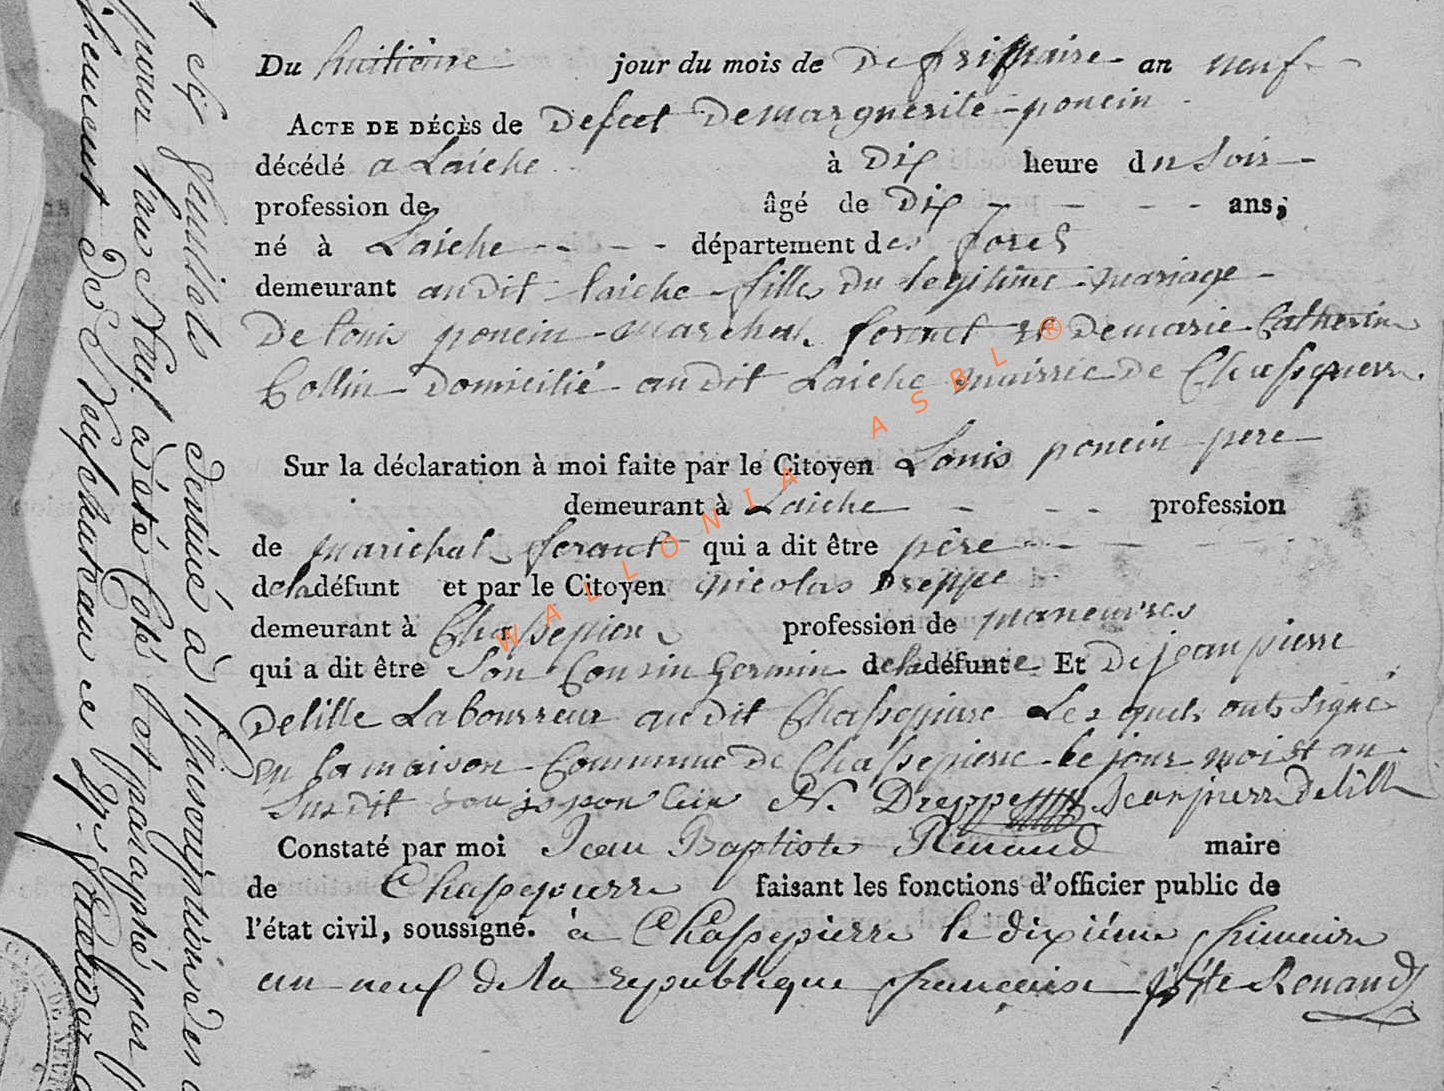 Du huitieme jour du mois de De frimaire an neuf
ACTE DE DÉCÈS de Defeet De marguerite poncin
décédé a Laiche à Dix heure du Soir
profession de âgé de Dix ans,
né à Laiche département des forets
demeurant audit laiche fille du legitime mariage
De louis poncin marchal ferant et De marie Catherine
Collin domicilié audit Laiche mairrie de Chassepierre
Sur la déclaration à moi faite par le Citoyen Louis poncin pere
demeurant à Laiche profession
de marichal ferant qui a dit être père
de la défunt et par le Citoyen nicolas Dreppe
demeurant à Chassepiere profession de maneuvres
qui a dit être Son Cousin Germin de la défunte Et De jean pierre
Delille Labourreur audit Chassepierre Lesquels onts Signé
En la maison Commune De Chassepierre le jour mois et an
Susdit N. Dreppe Jean pierre Delille
Constaté par moi Jean Baptiste Renaud maire
de Chassepierre faisant les fonctions d'officier public de
l'état civil, soussigné. à Chassepierre le dixiéme frimaire
an neuf de la republique francaise Renaud
destiné à l'inscription des
pour l'an Neuf à été Coté et paraphé par
de Neufchateau
WALLONIA ASBL ®